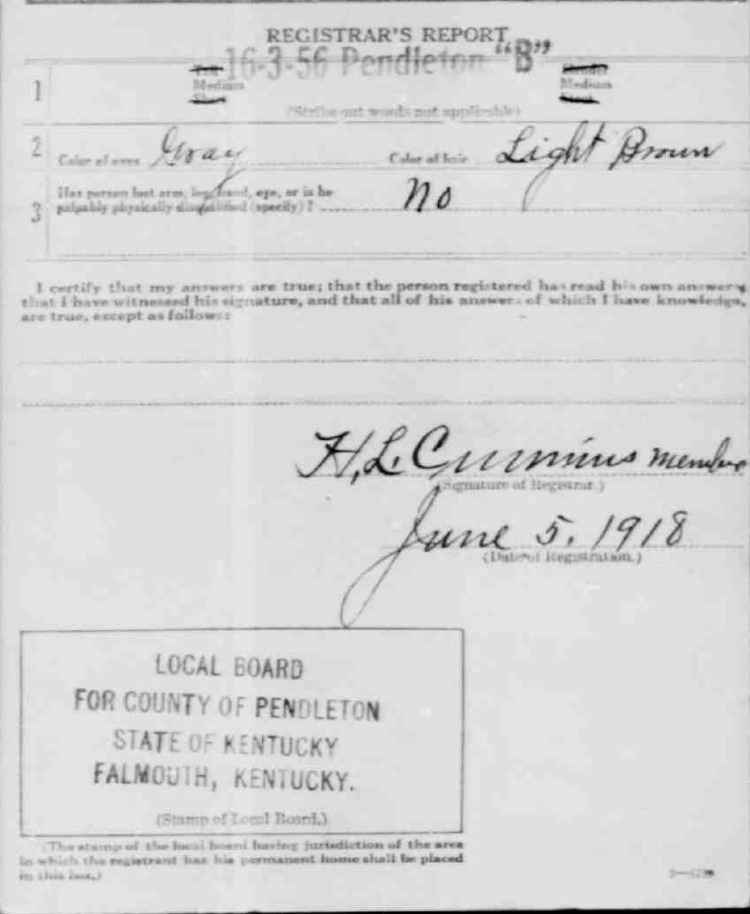 REGISTRAR'S REPORT
16-3-56 Pendleton "B"
1 Tall Medium Short Slender Medium Stout
(Strike out words not applicable)
2 Color of eyes Gray Color of hair Light Brown
3 Has person lost arm, leg, hand, eye, or is he
palpably physically disqualified (specify)? No
I certify that my answers are true; that the person registered has read his own answers,
that I have witnessed his signature, and that all of his answers of which I have knowledge,
are true, except as follows:
H. L. Cummins member
(Signature of Registrar.)
June 5. 1918
(Date of Registration.)
LOCAL BOARD
FOR COUNTY OF PENDLETON
STATE OF KENTUCKY
FALMOUTH, KENTUCKY.
(Stamp of Local Board.)
(The stamp of the local board having jurisdiction of the area
in which the registrant has his permanent home shall be placed
in this box.)